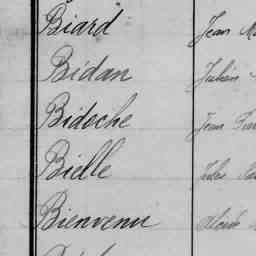 Biard Jean
Bidan Julien
Bidoche Jean
Bielle Jules
Bienvenu Alcide